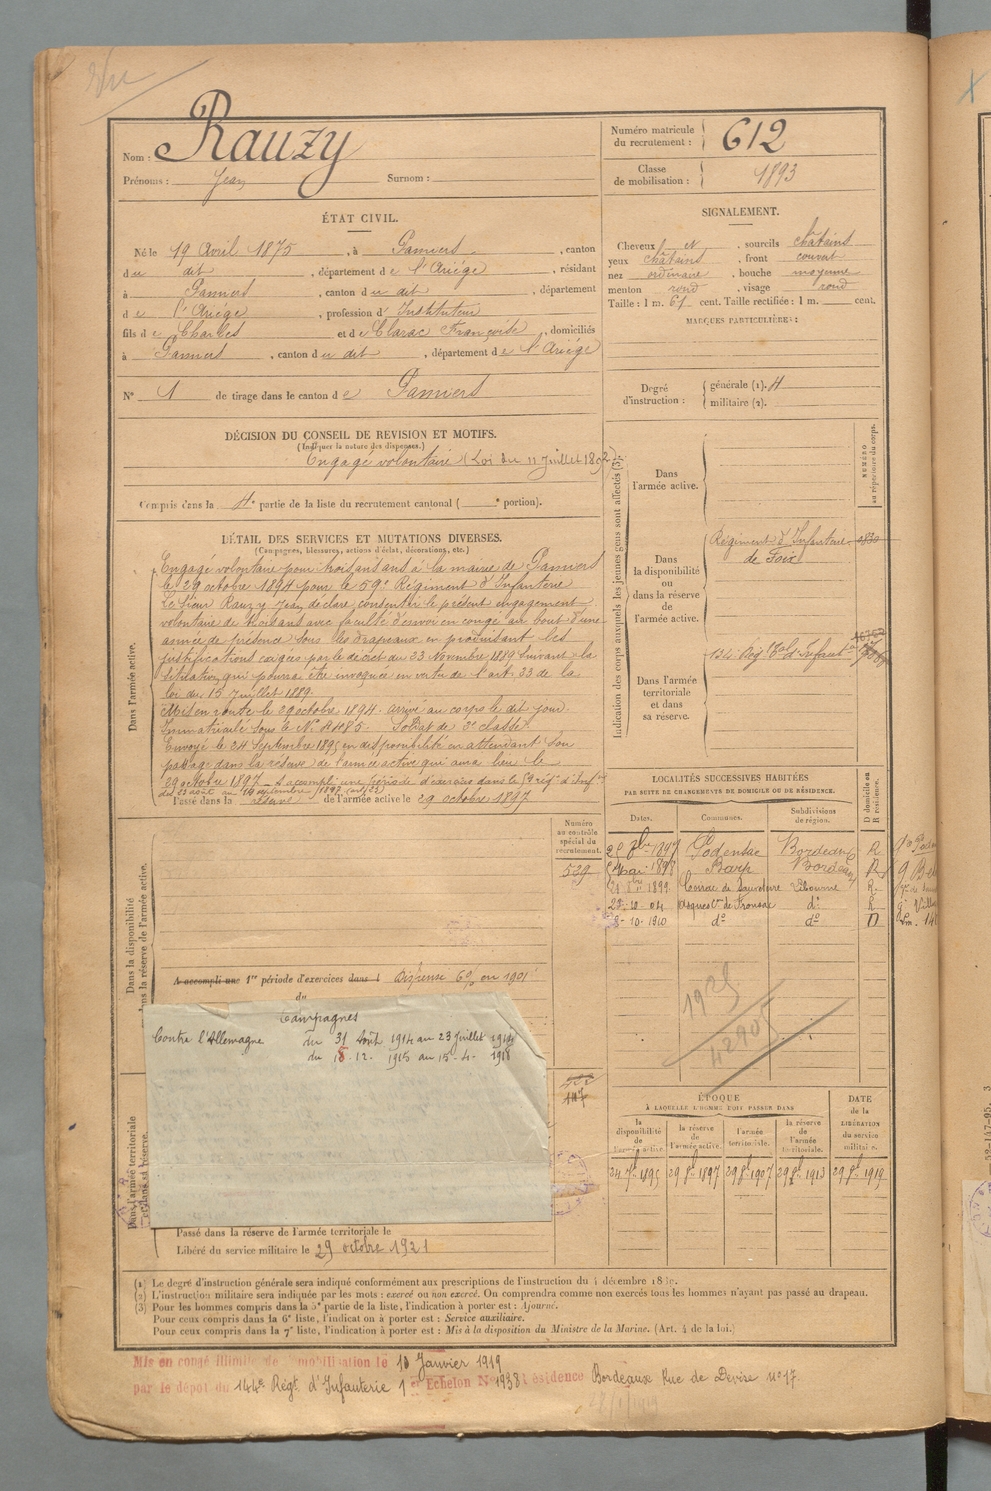 Vu
Nom : Rauzy
Prénoms : Jean Surnom :
Numéro matricule du recrutement : 612
Classe de mobilisation : 1893
ÉTAT CIVIL.
Né le 19 Avril 1875, à Pamiers, canton
du dit, département de l'Ariège, résidant
à Pamiers, canton du dit, département
de l'Ariège, profession d'Instituteur
fils de Charles et de Clarac Françoise, domiciliés
à Pamiers, canton du dit, département de l'Ariège
SIGNALEMENT.
Cheveux et, sourcils châtains
yeux châtains, front couvert
nez ordinaire, bouche moyenne
menton rond, visage rond
Taille : 1 m. 61 cent. Taille rectifiée : 1 m. cent.
MARQUES PARTICULIÈRES :
N° 1 de tirage dans le canton de Pamiers
Degré d'instruction : générale (1).
militaire (2).
DÉCISION DU CONSEIL DE REVISION ET MOTIFS.
(Indiquer la nature des dispenses.)
Engagé volontaire (Loi du 11 Juillet 1892)
Compris dans la 4e partie de la liste du recrutement cantonal ( e portion).
DÉTAIL DES SERVICES ET MUTATIONS DIVERSES.
(Campagnes, blessures, actions d'éclat, décorations, etc.)
Dans l'armée active.
Engagé volontaire pour trois ans à la mairie de Pamiers
le 29 octobre 1894 pour le 59e Régiment d'Infanterie
Le Sieur Rauzy Jean déclare consentir le présent engagement
volontaire de trois ans avec faculté d'envoi en congé au bout d'une
année de présence sous les drapeaux en produisant les
justifications exigées par le décret du 23 Novembre 1889 suivant la
situation qui pourra être invoquée en vertu de l'art. 23 de la
loi du 15 Juillet 1889.
Mis en route le 29 octobre 1894 - arrivé au corps le dit jour.
Immatriculé sous le N° 4485. Soldat de 2e classe.
Envoyé le 24 Septembre 1895 en disponibilité en attendant son
passage dans la réserve de l'armée active qui aura lieu le
29 octobre 1897 - A accompli une période d'exercices dans le 59 régt d'Infrie
du 23 août au 19 septembre 1897 (art 23)
Passé dans la réserve de l'armée active le 29 octobre 1897
Indication des corps auxquels les jeunes gens sont affectés (3).
NUMÉRO au répertoire du corps.
Dans l'armée active.
Dans la disponibilité ou dans la réserve de l'armée active.
Régiment d'Infanterie 2830
de Foix
Dans l'armée territoriale et dans sa réserve.
134e Régt tal d'Infant
LOCALITÉS SUCCESSIVES HABITÉES
PAR SUITE DE CHANGEMENTS DE DOMICILE OU DE RÉSIDENCE.
Dates. Communes. Subdivisions de région. D domicile ou R résidence.
1897 Podensac Bordeaux R
Mai 1898 Barp Bordeaux R
1899 de Sauveterre Libourne R
23-10-04 de Fronsac do R
8-10-1910 do do D
1925
42905
Dans la disponibilité
dans la réserve de l'armée active.
Numéro au contrôle spécial du recrutement.
529
A accompli une 1re période d'exercices dans l Dispensé 6% en 1901
du
Campagnes
Contre l'Allemagne du 31 Août 1914 au 23 Juillet 1915
du 18-12- 1915 au 15-4- 1918
Dans l'armée territoriale
et dans sa réserve.
ÉPOQUE
À LAQUELLE L'HOMME DOIT PASSER DANS
la disponibilité de l'armée active. la réserve de l'armée active. l'armée territoriale. la réserve de l'armée territoriale.
DATE de la LIBÉRATION du service militaire.
24 7bre 1895 29 8bre 1897 29 8bre 1907 29 8bre 1913 29 8bre 1919
Passé dans la réserve de l'armée territoriale le
Libéré du service militaire le 29 octobre 1921
(1) Le degré d'instruction générale sera indiqué conformément aux prescriptions de l'instruction du 4 décembre 1889.
(2) L'instruction militaire sera indiquée par les mots : exercé ou non exercé. On comprendra comme non exercés tous les hommes n'ayant pas passé au drapeau.
(3) Pour les hommes compris dans la 5e partie de la liste, l'indication à porter est : Ajourné.
Pour ceux compris dans la 6e liste, l'indication à porter est : Service auxiliaire.
Pour ceux compris dans la 7e liste, l'indication à porter est : Mis à la disposition du Ministre de la Marine. (Art. 4 de la loi.)
Mis en congé illimité de démobilisation le 10 Janvier 1919
par le dépôt du 144e Régt d'Infanterie 1er Echelon N° 1938 Résidence Bordeaux Rue de Devise n° 17.